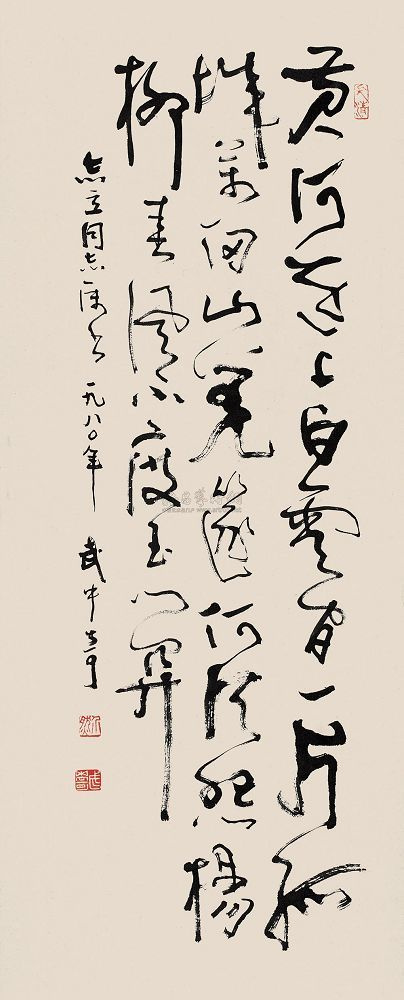 黄河遠上白雲间一片孤
城萬仞山羌笛何须怨楊
柳春風不度玉门関
立同志属书 一九八〇年 武中奇